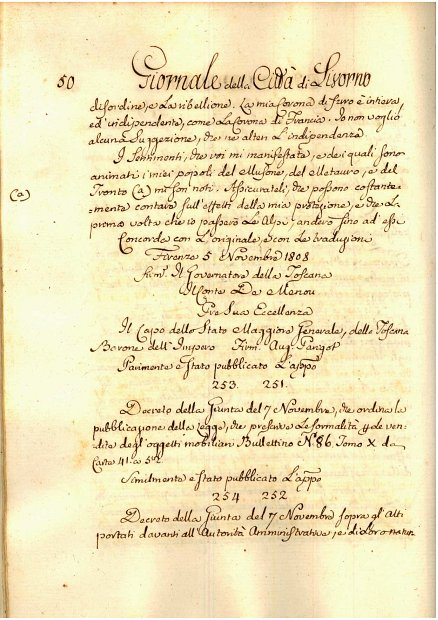 50 Giornale della Città di Livorno
disordine, e La ribellione. La mia Corona di ferro è intiera,
ed' indipendente, come La Corona di Francia. Io non voglio
alcuna Suggezione, che ne alteri L'indipendenza
I Sentimenti, che voi mi manifestate, e dei quali sono
animati i miei popoli del Musone, del Metauro, e del
(a) Tronto (a) mi son noti. Assicurateli, che possono costante=
=mente contare sull'effetti della mia protezione, e che La
prima volta che io passerò Le Alpi, anderò fino ad essi
Concorda con L'originale, e con Le traduzioni
Firenze 5 Novembre 1808
Firm.° Il Governatore della Toscana
Il Conte De Menou
Per Sua Eccellenza
Il Capo dello Stato Maggiore Generale, della Toscana
Barone dell'Impero Firm. Aug.
Parimente è Stato pubblicato L'app.°
253. 251.
Decreto della Giunta del 7 Novembre, che ordina la
pubblicazione della Legge, che prescrive Le formalità p. le ven=
dite degl'oggetti mobiliari Bullettino N.° 86. Tomo X da
Carte 41. a 52.
Similmente è Stato pubblicato L'app.°
254 252
Decreto della Giunta del 7 Novembre sopra gl'Atti
portati davanti all'Autorità Amministrative, e di Loro natur